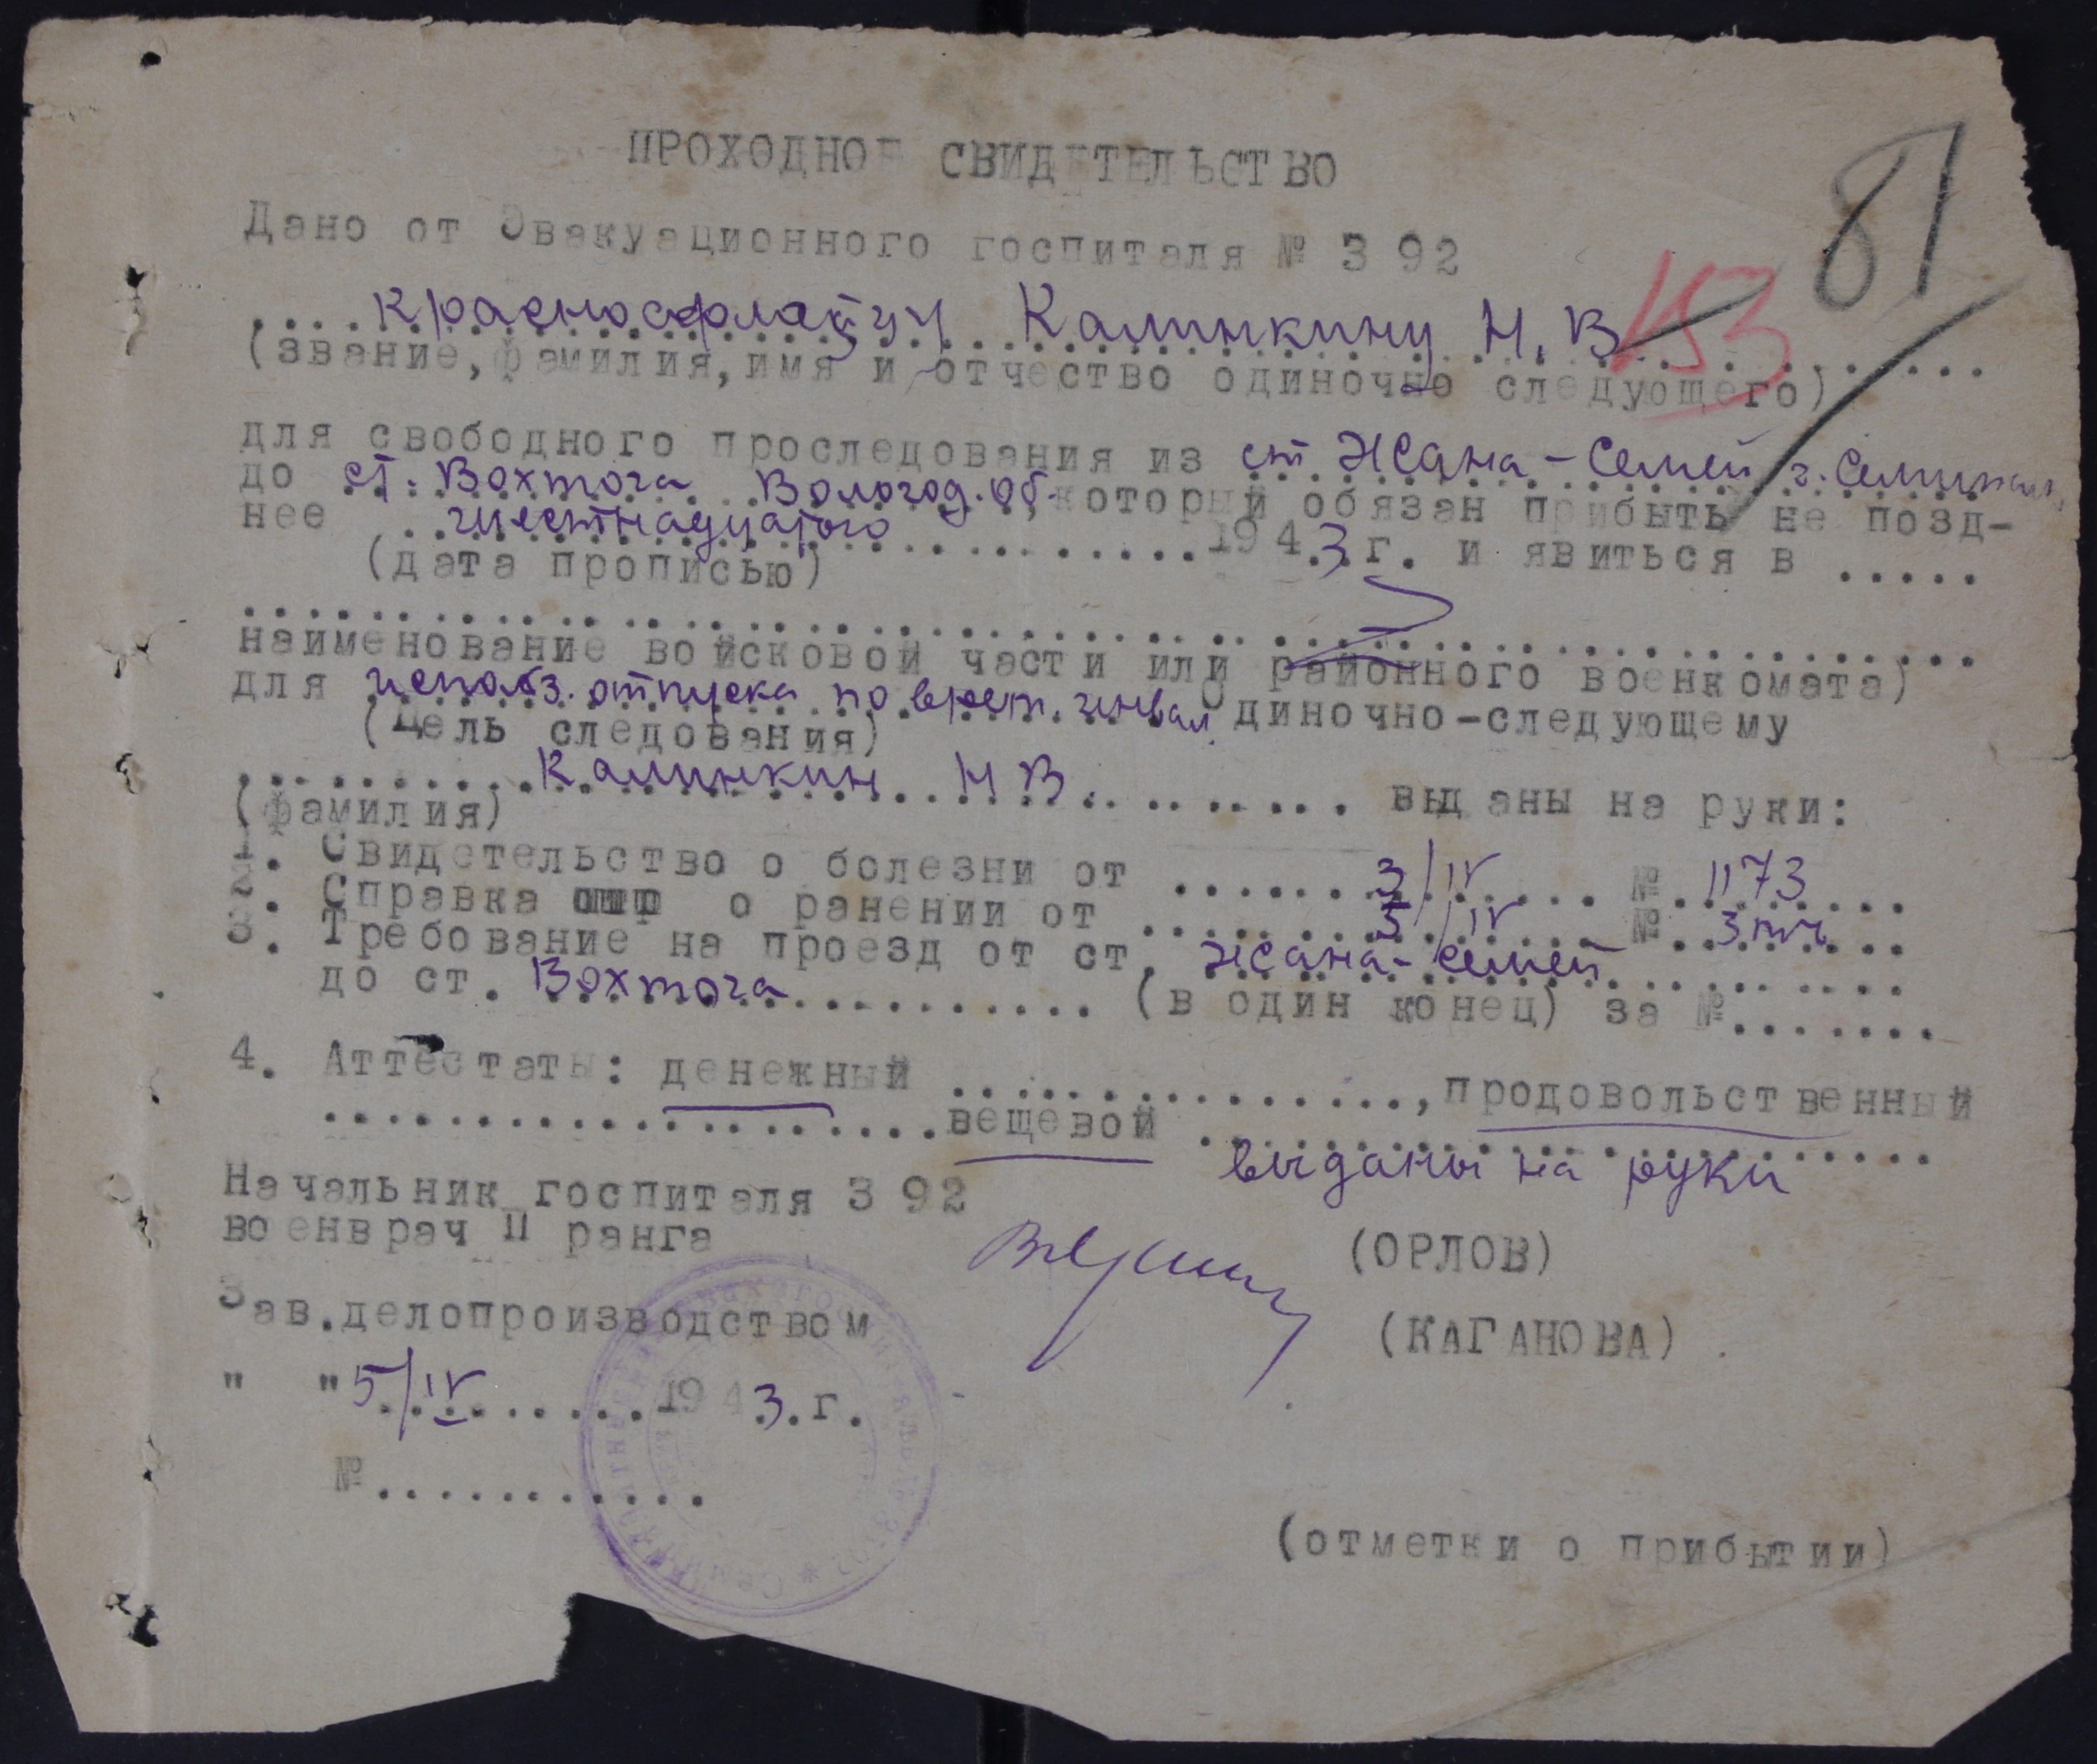 81
ПРОХОДНОЕ СВИДЕТЕЛЬСТВО
Дано от Эвакуационного госпиталя № 3 92
153
....Краснофлотцу Калинкину Н. В.......
(звание, фамилия, имя и отчество одиночно следующего)
для свободного проследования из ст. Жана-Семей г. Семипал.
до ст. Вохтога Вологод. об. который обязан прибыть не позд-
нее ..шестнадцатого..........194.3.г. и явиться в .....
(дата прописью)
наименование войсковой части или районного военкомата)
для использ. отпуска по врем. инвал. Одиночно-следующему
(Цель следования)
.........Калинкин Н В......... выданы на руки:
(фамилия)
1. Свидетельство о болезни от ......3/IV.... № .1173...
2. Справка о ранении от .......5/IV.... №.........
3. Требование на проезд от ст. Жана-Семей.........
до ст. Вохтога............ (в один конец) за №.......
4. Аттестаты: денежный ..............., продовольственный
....................вещевой .......................
выданы на руки
Начальник госпиталя 3 92
военврач II ранга
(ОРЛОВ)
Зав.делопроизводством
(КАГАНОВА)
" "5/IV.........1943.г.
№...........
(отметки о прибытии)